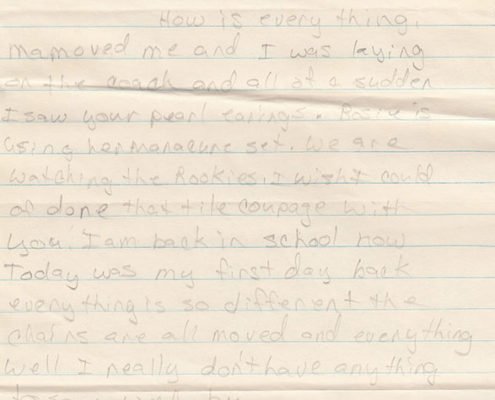 How is every thing.
mamoved me and I was laying
on the coach and all of a sudden
I saw your pearl earings. Rosie is
using her manacure set. We are
watching the Rookies. I wisht could
of done that tile coupage with
you. I am back in school now
Today was my first day back
everything is so different the
chairs are all moved and everything
well I really don't have anything